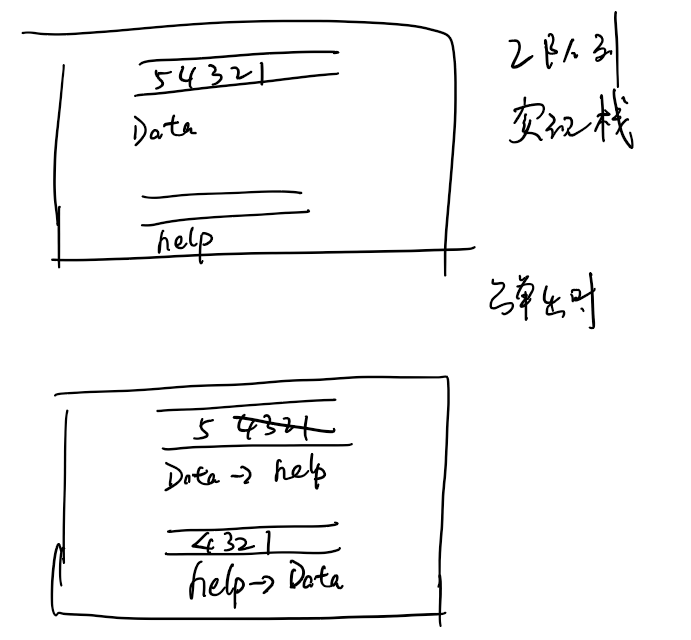 5 4 3 2 1
Data
help
2队列
实现栈
弹出时
5 4321
Data → help
4321
help → Data